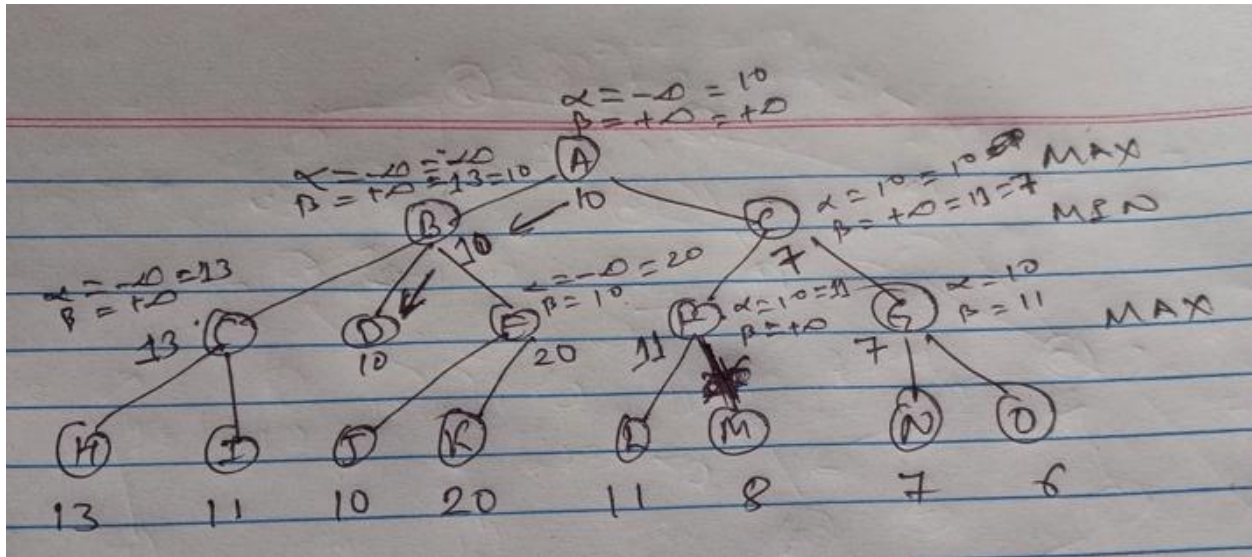 α = -∞ = 10
β = +∞ = +∞
A
10
MAX
α = -∞ = -∞
β = +∞ = 13 = 10
B
10
α = 10 = 10
β = +∞ = 11 = 7
C
7
MIN
α = -∞ = 13
β = +∞
C
13
D
10
α = -∞ = 20
β = 10
E
20
α = 10 = 11
β = +∞
F
11
α = 10
β = 11
G
7
MAX
H I J K L M N O
13 11 10 20 11 8 7 6